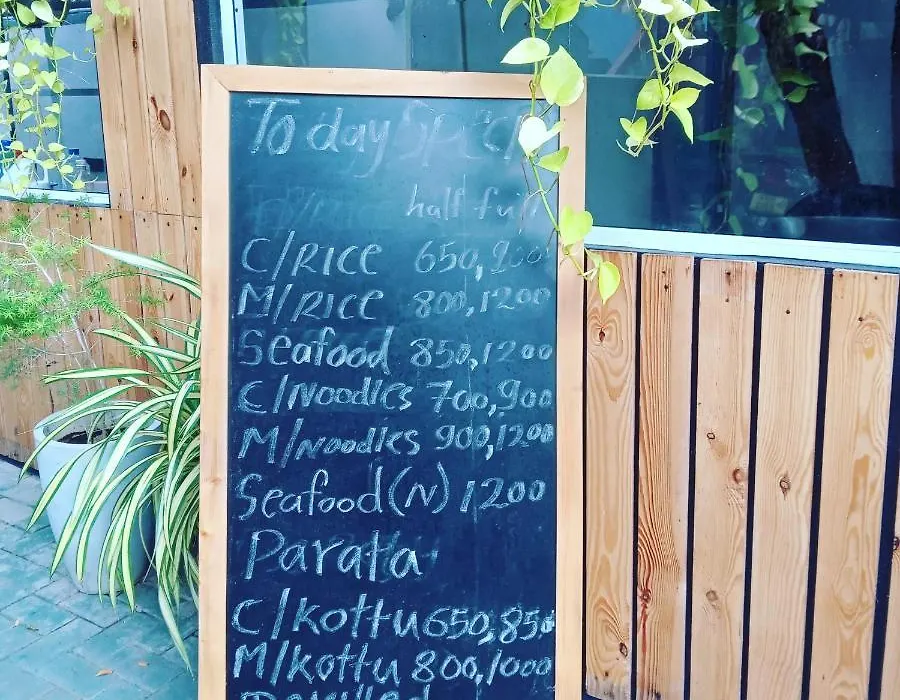 Today Speci
half full
C/RICE 650,900
M/RICE 800,1200
Seafood 850,1200
C/Noodles 700,900
M/Noodles 900,1200
Seafood(N) 1200
Parata
C/kottu 650,850
M/kottu 800,1000